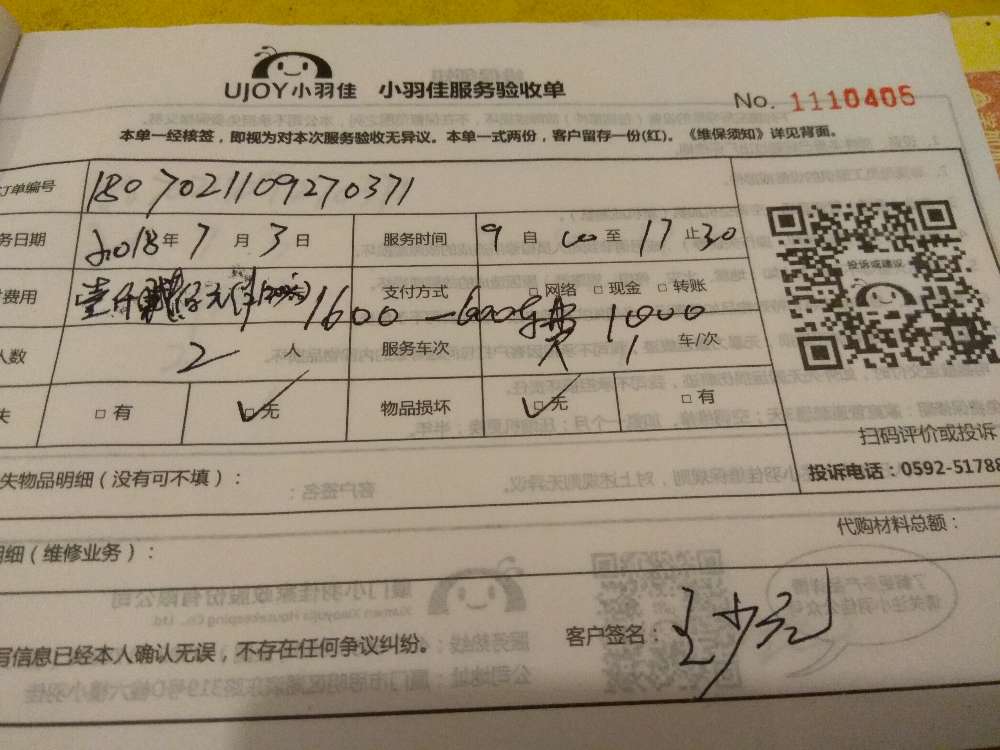 UJOY小羽佳 小羽佳服务验收单
No. 1110405
本单一经核签，即视为对本次服务验收无异议。本单一式两份，客户留存一份(红)。《维保须知》详见背面。
订单编号 1807021109270371
务日期 2018年7月3日 服务时间 9自00至17止30
费用 壹仟 元 1600-600 1000 支付方式 □网络 □现金 □转账
人数 2人 服务车次 1车/次
失 □有 □无 物品损坏 □无 □有
投诉或建议
扫码评价或投诉
投诉电话：0592-51788
失物品明细（没有可不填）：
代购材料总额：
明细（维修业务）：
写信息已经本人确认无误，不存在任何争议纠纷。
客户签名：